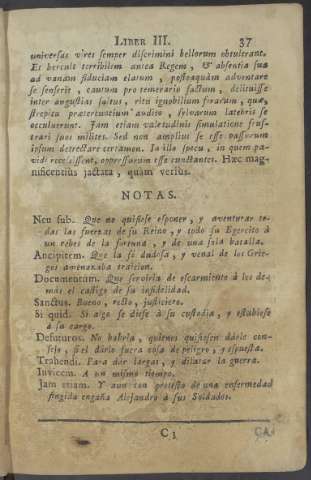 LIBER III. 37
universas vires semper discrimini bellorum obtulerant.
Et hercule terribilem antea Regem, & absentia sua
ad vanam fiduciam elatum, postquàm adventare
se senserit, cautum pro temerario factum, delituisse
inter angustias saltus, ritu ignobilium ferarum, quæ,
strepitu prætereuntium audito, sylvarum latebris se
occuluerunt. Jam etiam valetudinis simulatione frus-
trari suos milites. Sed non amplius se esse passurum
ipsum detrectare certamen. In illo specu, in quem pa-
vidi recessissent, oppressurum esse cunctantes. Hæc mag-
nificentius jactata, quàm verius.
NOTAS.
Neu sub. Que no quisiese esponer, y aventurar to-
das las fuerzas de su Reino, y todo su Egercito à
un rebes de la fortuna, y de una sola batalla.
Ancipitem. Que la fè dudosa, y venal de los Grie-
gos amenazaba traicion.
Documentum. Que serviria de escarmiento à los de-
más el castigo de su infidelidad.
Sanctus. Bueno, recto, justiciero.
Si quid. Si algo se diese à su custodia, y estubiese
à su cargo.
Defuturos. No habria, quienes quisiesen dàrle con-
sejo, si el dàrlo fuera cosa de peligro, y espuesta.
Trahendi. Para dàr largas, y dilatar la guerra.
Invicem. A un mismo tiempo.
Jam etiam. Y aun con protesto de una enfermedad
fingida engaña Alejandro à sus Soldados.
C 3 CA-